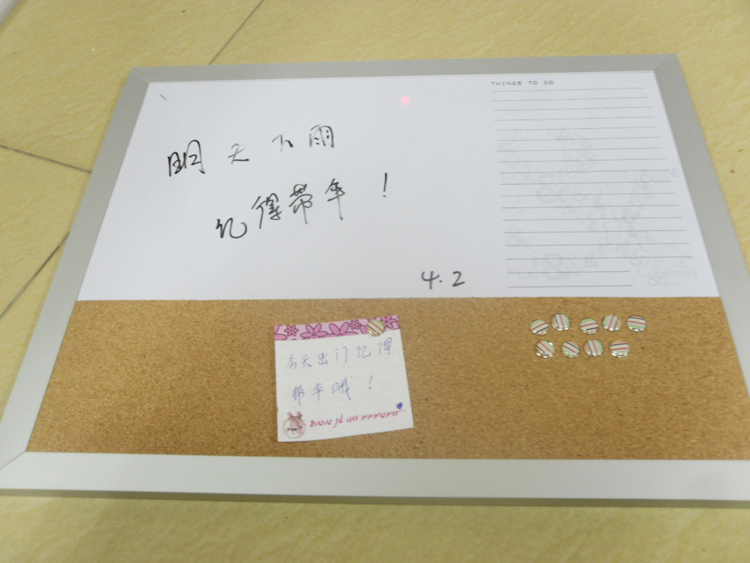 THINGS TO DO
明天下雨
记得带伞！
4.2
今天出门记得
带伞哦！